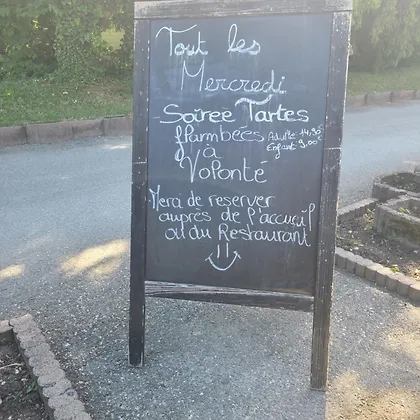 Tout les
Mercredi
Soirée Tartes
flambées Adulte: 14,90€
à Enfant: 9,00€
Volonté
Merci de reserver
auprès de l'accueil
ou du Restaurant